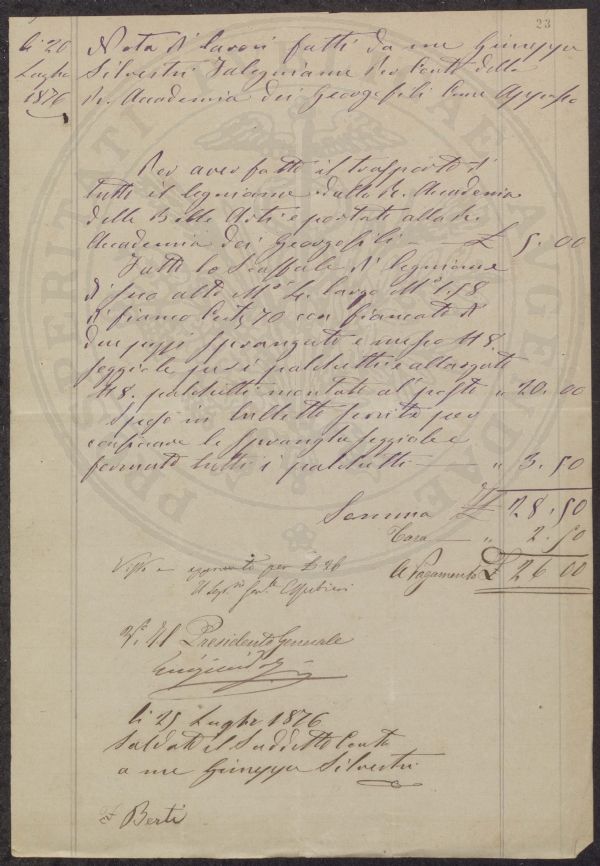 23
li 20
Luglio
1876
Nota di lavori fatti da me Giuseppe
Silvestri Falegniame per Conto della
R. Accademia dei Georgofili Come Appresso
Per aver fatto il trasporto di
tutti il legniame dalla R. Accademia
delle Belle Arti e portati alla R.
Accademia dei Georgofili — £ 5. 00
Fatto lo Scaffale di legniame
di suo alto Mi 4. largo Mi 1.58
di fianco Cent 70 con fiancate di
due pezzi sprangate e messo 48
seggiole per i palchetti e allargati
48. palchetti montati al posto " 20. 00
Speso in bullette servite per
conficcare le spranghe seggiole e
fermato tutti i palchetti — " 3. 50
Somma £ 28. 50
Tara — " 2. 50
A Pagamento £ 26 00
Visto per £ 26
Vo. Il Presidente Generale
li 25 Luglio 1876
Saldato il Suddetto Conto
a me Giuseppe Silvestri
Berti
PROSPERITATI PUBLICAE AUGENDAE